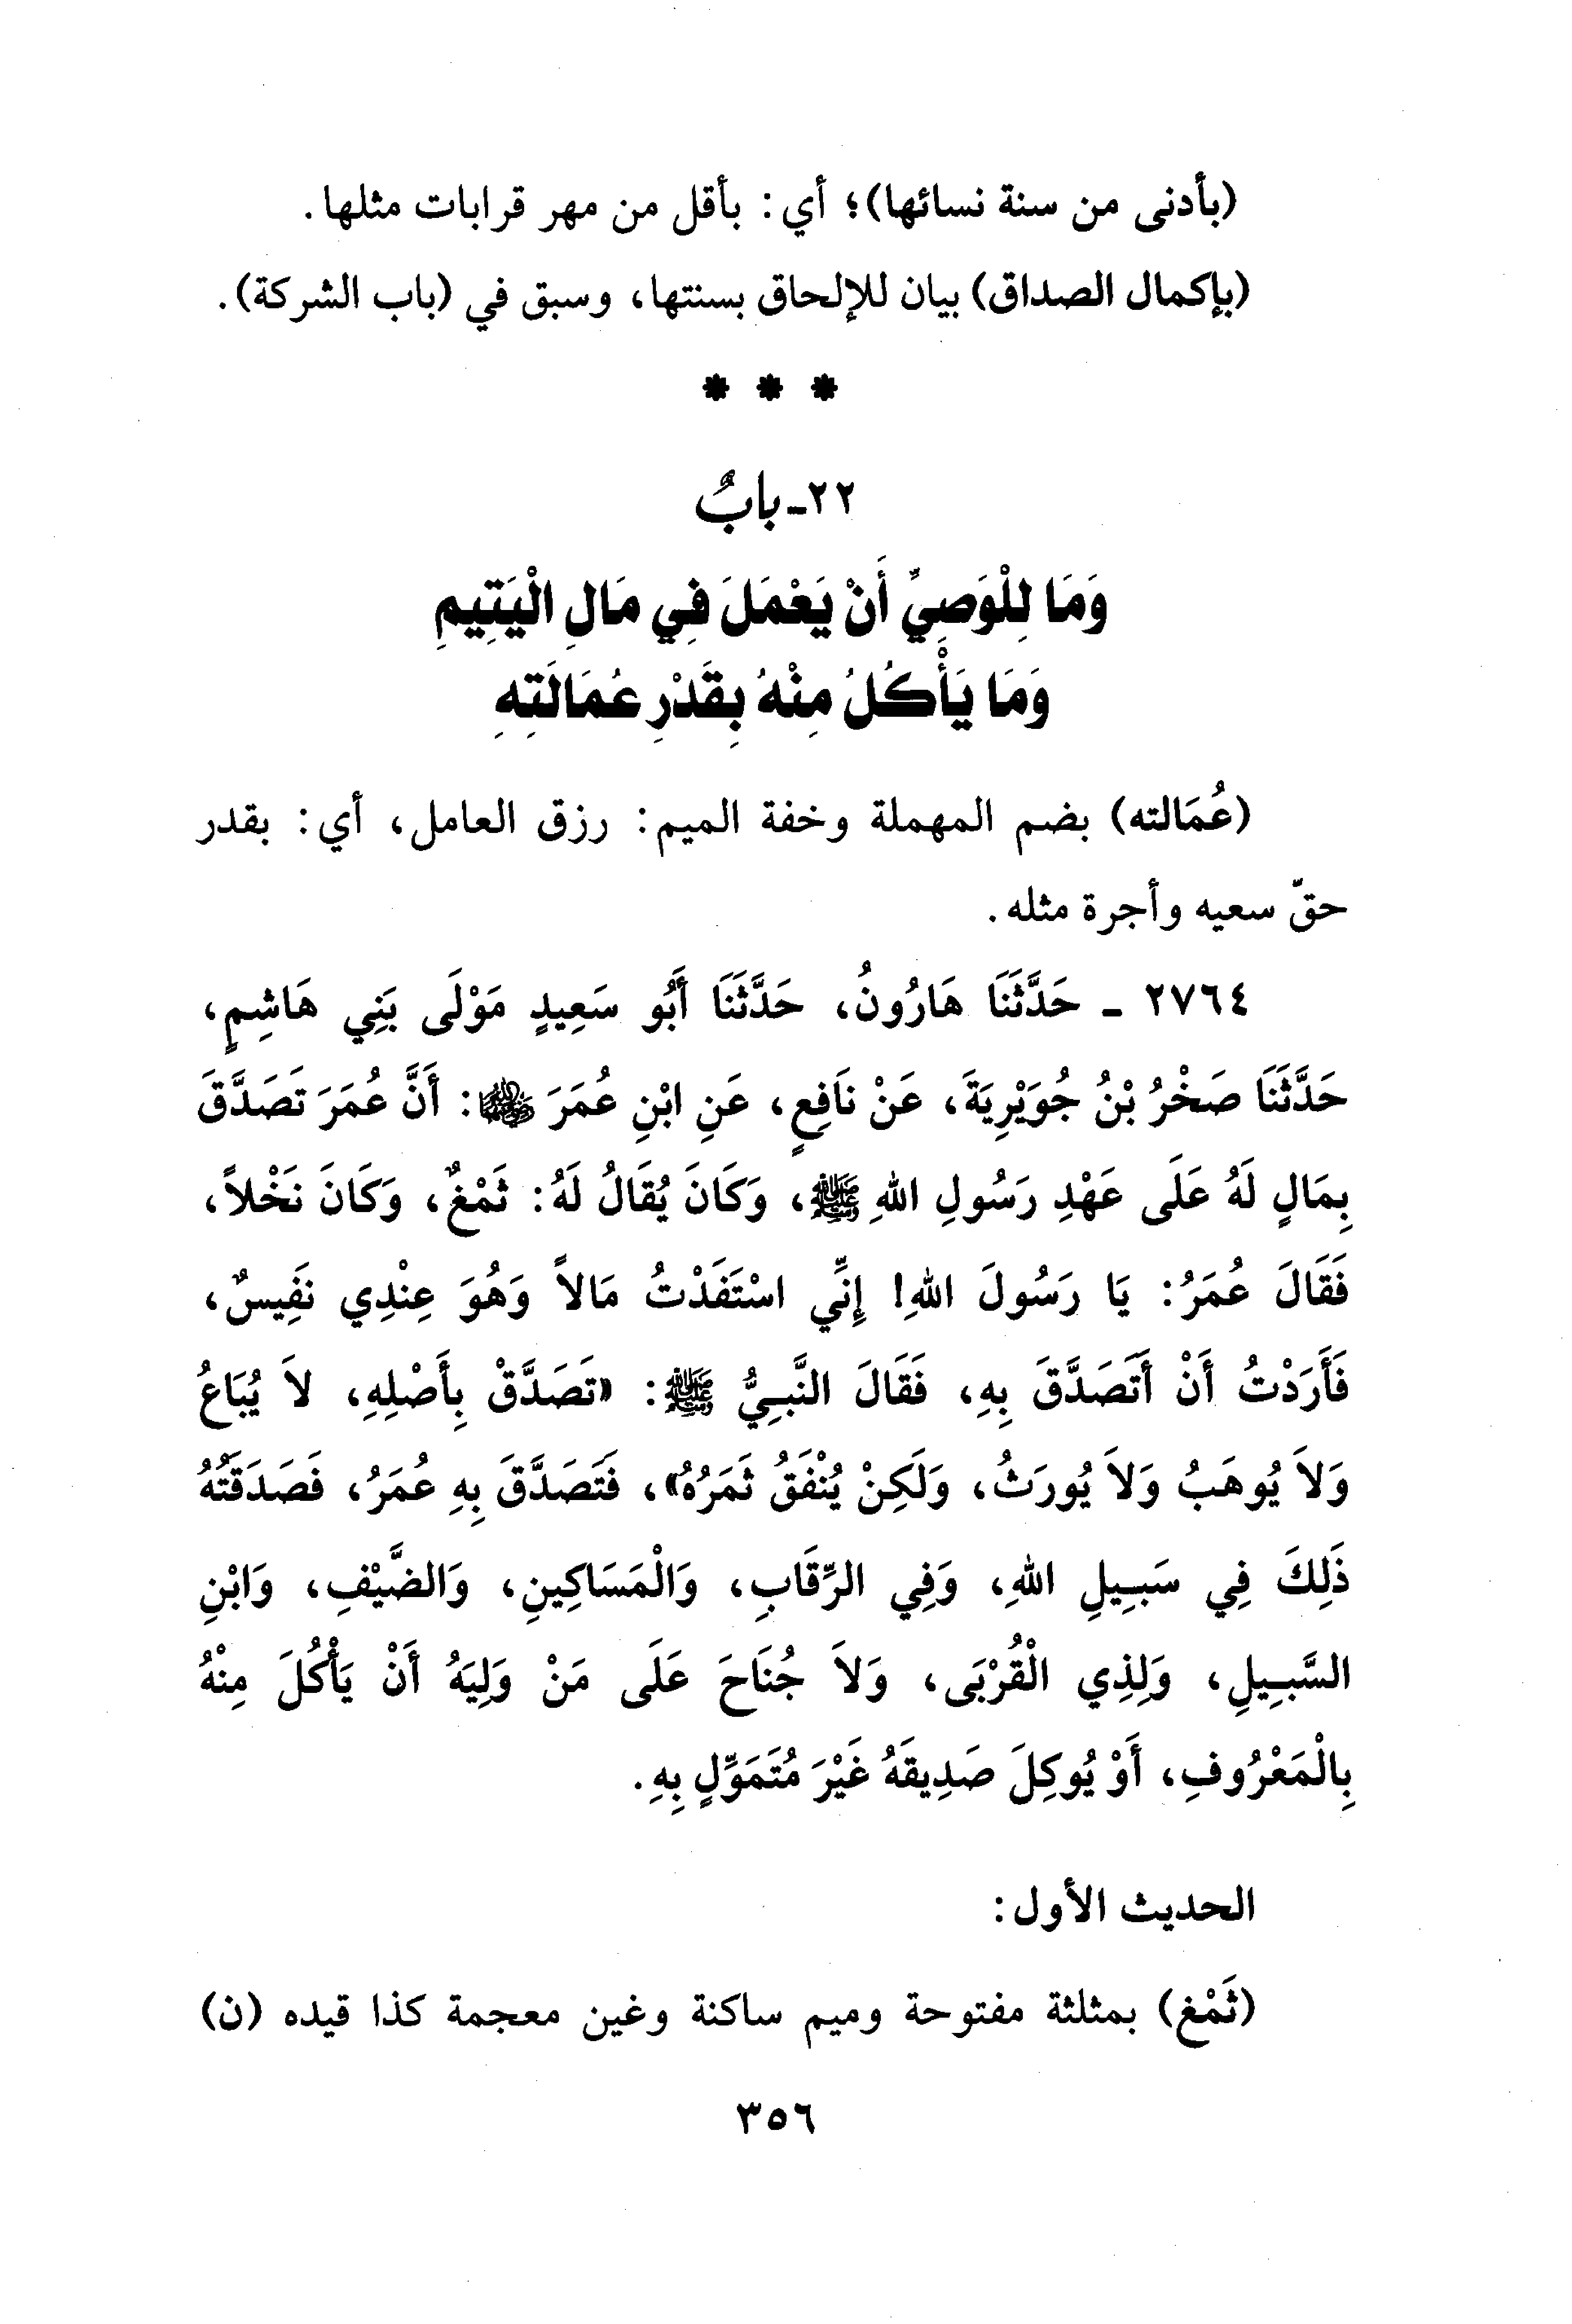 (بأدنى من سنة نسائها)؛ أي: بأقل من مهر قرابات مثلها.
(بإكمال الصداق) بيان للإلحاق بسنتها، وسبق في (باب الشركة).
* * *
٢٢- بابٌ
وَمَا لِلْوَصِيِّ أَنْ يَعْمَلَ فِي مَالِ الْيَتِيمِ
وَمَا يَأْكُلُ مِنْهُ بِقَدْرِ عُمَالَتِهِ
(عُمَالته) بضم المهملة وخفة الميم: رزق العامل، أي: بقدر
حقّ سعيه وأجرة مثله.
٢٧٦٤ - حَدَّثَنَا هَارُونُ، حَدَّثَنَا أَبُو سَعِيدٍ مَوْلَى بَنِي هَاشِمٍ،
حَدَّثَنَا صَخْرُ بْنُ جُوَيْرِيَةَ، عَنْ نَافِعٍ، عَنِ ابْنِ عُمَرَ رضي الله عنهما: أَنَّ عُمَرَ تَصَدَّقَ
بِمَالٍ لَهُ عَلَى عَهْدِ رَسُولِ اللهِ ﷺ، وَكَانَ يُقَالُ لَهُ: ثَمْغٌ، وَكَانَ نَخْلاً،
فَقَالَ عُمَرُ: يَا رَسُولَ اللهِ! إِنِّي اسْتَفَدْتُ مَالاً وَهُوَ عِنْدِي نَفِيسٌ،
فَأَرَدْتُ أَنْ أَتَصَدَّقَ بِهِ، فَقَالَ النَّبِيُّ ﷺ: «تَصَدَّقْ بِأَصْلِهِ، لاَ يُبَاعُ
وَلاَ يُوهَبُ وَلاَ يُورَثُ، وَلَكِنْ يُنْفَقُ ثَمَرُهُ»، فَتَصَدَّقَ بِهِ عُمَرُ، فَصَدَقَتُهُ
ذَلِكَ فِي سَبِيلِ اللهِ، وَفِي الرِّقَابِ، وَالْمَسَاكِينِ، وَالضَّيْفِ، وَابْنِ
السَّبِيلِ، وَلِذِي الْقُرْبَى، وَلاَ جُنَاحَ عَلَى مَنْ وَلِيَهُ أَنْ يَأْكُلَ مِنْهُ
بِالْمَعْرُوفِ، أَوْ يُوكِلَ صَدِيقَهُ غَيْرَ مُتَمَوِّلٍ بِهِ.
الحديث الأول:
(ثَمْغ) بمثلثة مفتوحة وميم ساكنة وغين معجمة كذا قيده (ن)
٣٥٦